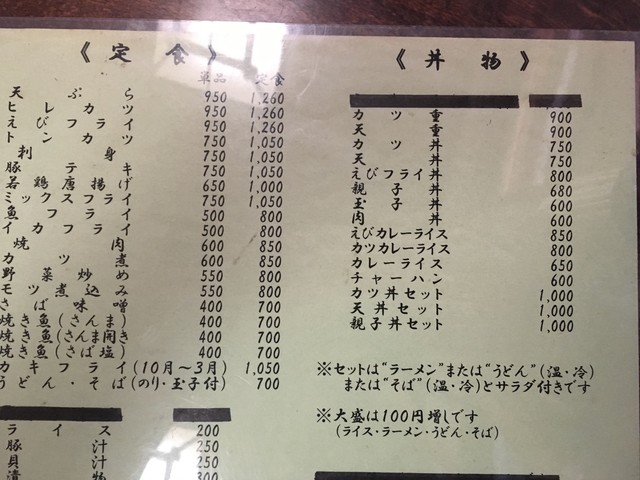 《定食》
単品 定食
天ぷら 950 1,260
ヒレカツ 950 1,260
えびフライ 950 1,260
トンカツ 750 1,050
刺身 750 1,050
豚テキ 750 1,050
若鶏唐揚げ 650 1,000
ミックスフライ 750 1,050
魚フライ 500 800
イカフライ 500 800
焼肉 600 850
カツ煮 600 850
野菜炒め 550 800
モツ煮込み 550 800
さば味噌 400 700
焼き魚(さんま) 400 700
焼き魚(さんま開き) 400 700
焼き魚(さば塩) 400 700
カキフライ(10月～3月) 1,050
うどん・そば(のり・玉子付) 700
ライス 200
豚汁 250
貝汁 250
漬物 300
《丼物》
カツ重 900
天重 900
カツ丼 750
天丼 750
えびフライ丼 800
親子丼 680
玉子丼 600
肉丼 600
えびカレーライス 850
カツカレーライス 800
カレーライス 650
チャーハン 600
カツ丼セット 1,000
天丼セット 1,000
親子丼セット 1,000
※セットは“ラーメン”または“うどん”(温・冷)
または“そば”(温・冷)とサラダ付きです
※大盛は100円増しです
(ライス・ラーメン・うどん・そば)